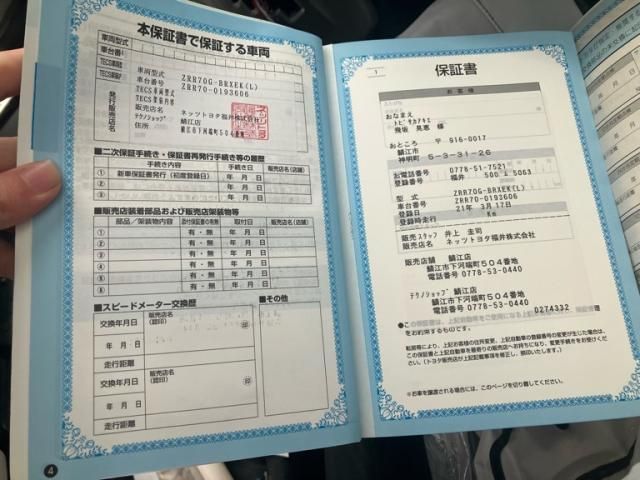 本保証書で保証する車両
車両型式
車台番号
車両型式 ZRR70G-BRXEK(L)
車台番号 ZRR70-0193606
TECS車両型式
TECS架装内容
発行販売店名
テクノショップ ネッツトヨタ福井株式会社
店名 鯖江店
住所 鯖江市下河端町504番地
■二次保証手続き・保証書再発行手続き等の履歴
手続き内容 手続き日 販売店名(店舗)
① 新車保証書発行(初度登録日) 年 月 日
② 年 月 日
③ 年 月 日
■販売店装着部品および販売店架装物等
部品/架装物内容 添付保証書の有無 取付日 販売店名(店舗)
① 有・無 年 月 日
② 有・無 年 月 日
③ 有・無 年 月 日
④ 有・無 年 月 日
⑤ 有・無 年 月 日
■スピードメーター交換歴
交換年月日 販売店名(認印) 印
年 月 日
走行距離
交換年月日 販売店名(認印) 印
年 月 日
走行距離
■その他
4
1
保証書
お客様
おなまえ
トビサカアキエ
飛坂 晃恵 様
おところ 〒 916-0017
鯖江市
神明町 5-3-31-26
お電話番号 0778-51-7521
登録番号 福井 500 る 5063
型式 ZRR70G-BRXEK(L)
車台番号 ZRR70-0193606
登録日 21年 3月 17日
登録時走行 Km
販売スタッフ 井上 圭司
販売店名 ネッツトヨタ福井株式会社
販売店舗 鯖江店
鯖江市下河端町504番地
電話番号 0778-53-0440
テクノショップ 鯖江店
鯖江市下河端町504番地
電話番号 0778-53-0440
0274332
●この保証書は、上記自動車をご使用になる
を お約束するものです。
転居等により、上記お客様の住所変更、上記自動車の登録番号の変更が生じた場合は、
この保証書と上記自動車を最寄りの販売店へお持ちになり、変更手続きをお受けくだ
さい。(トヨタ販売店が上記記載事項を修正し、捺印いたします。)
※お車を譲渡される場合には、このページを切り離してください。